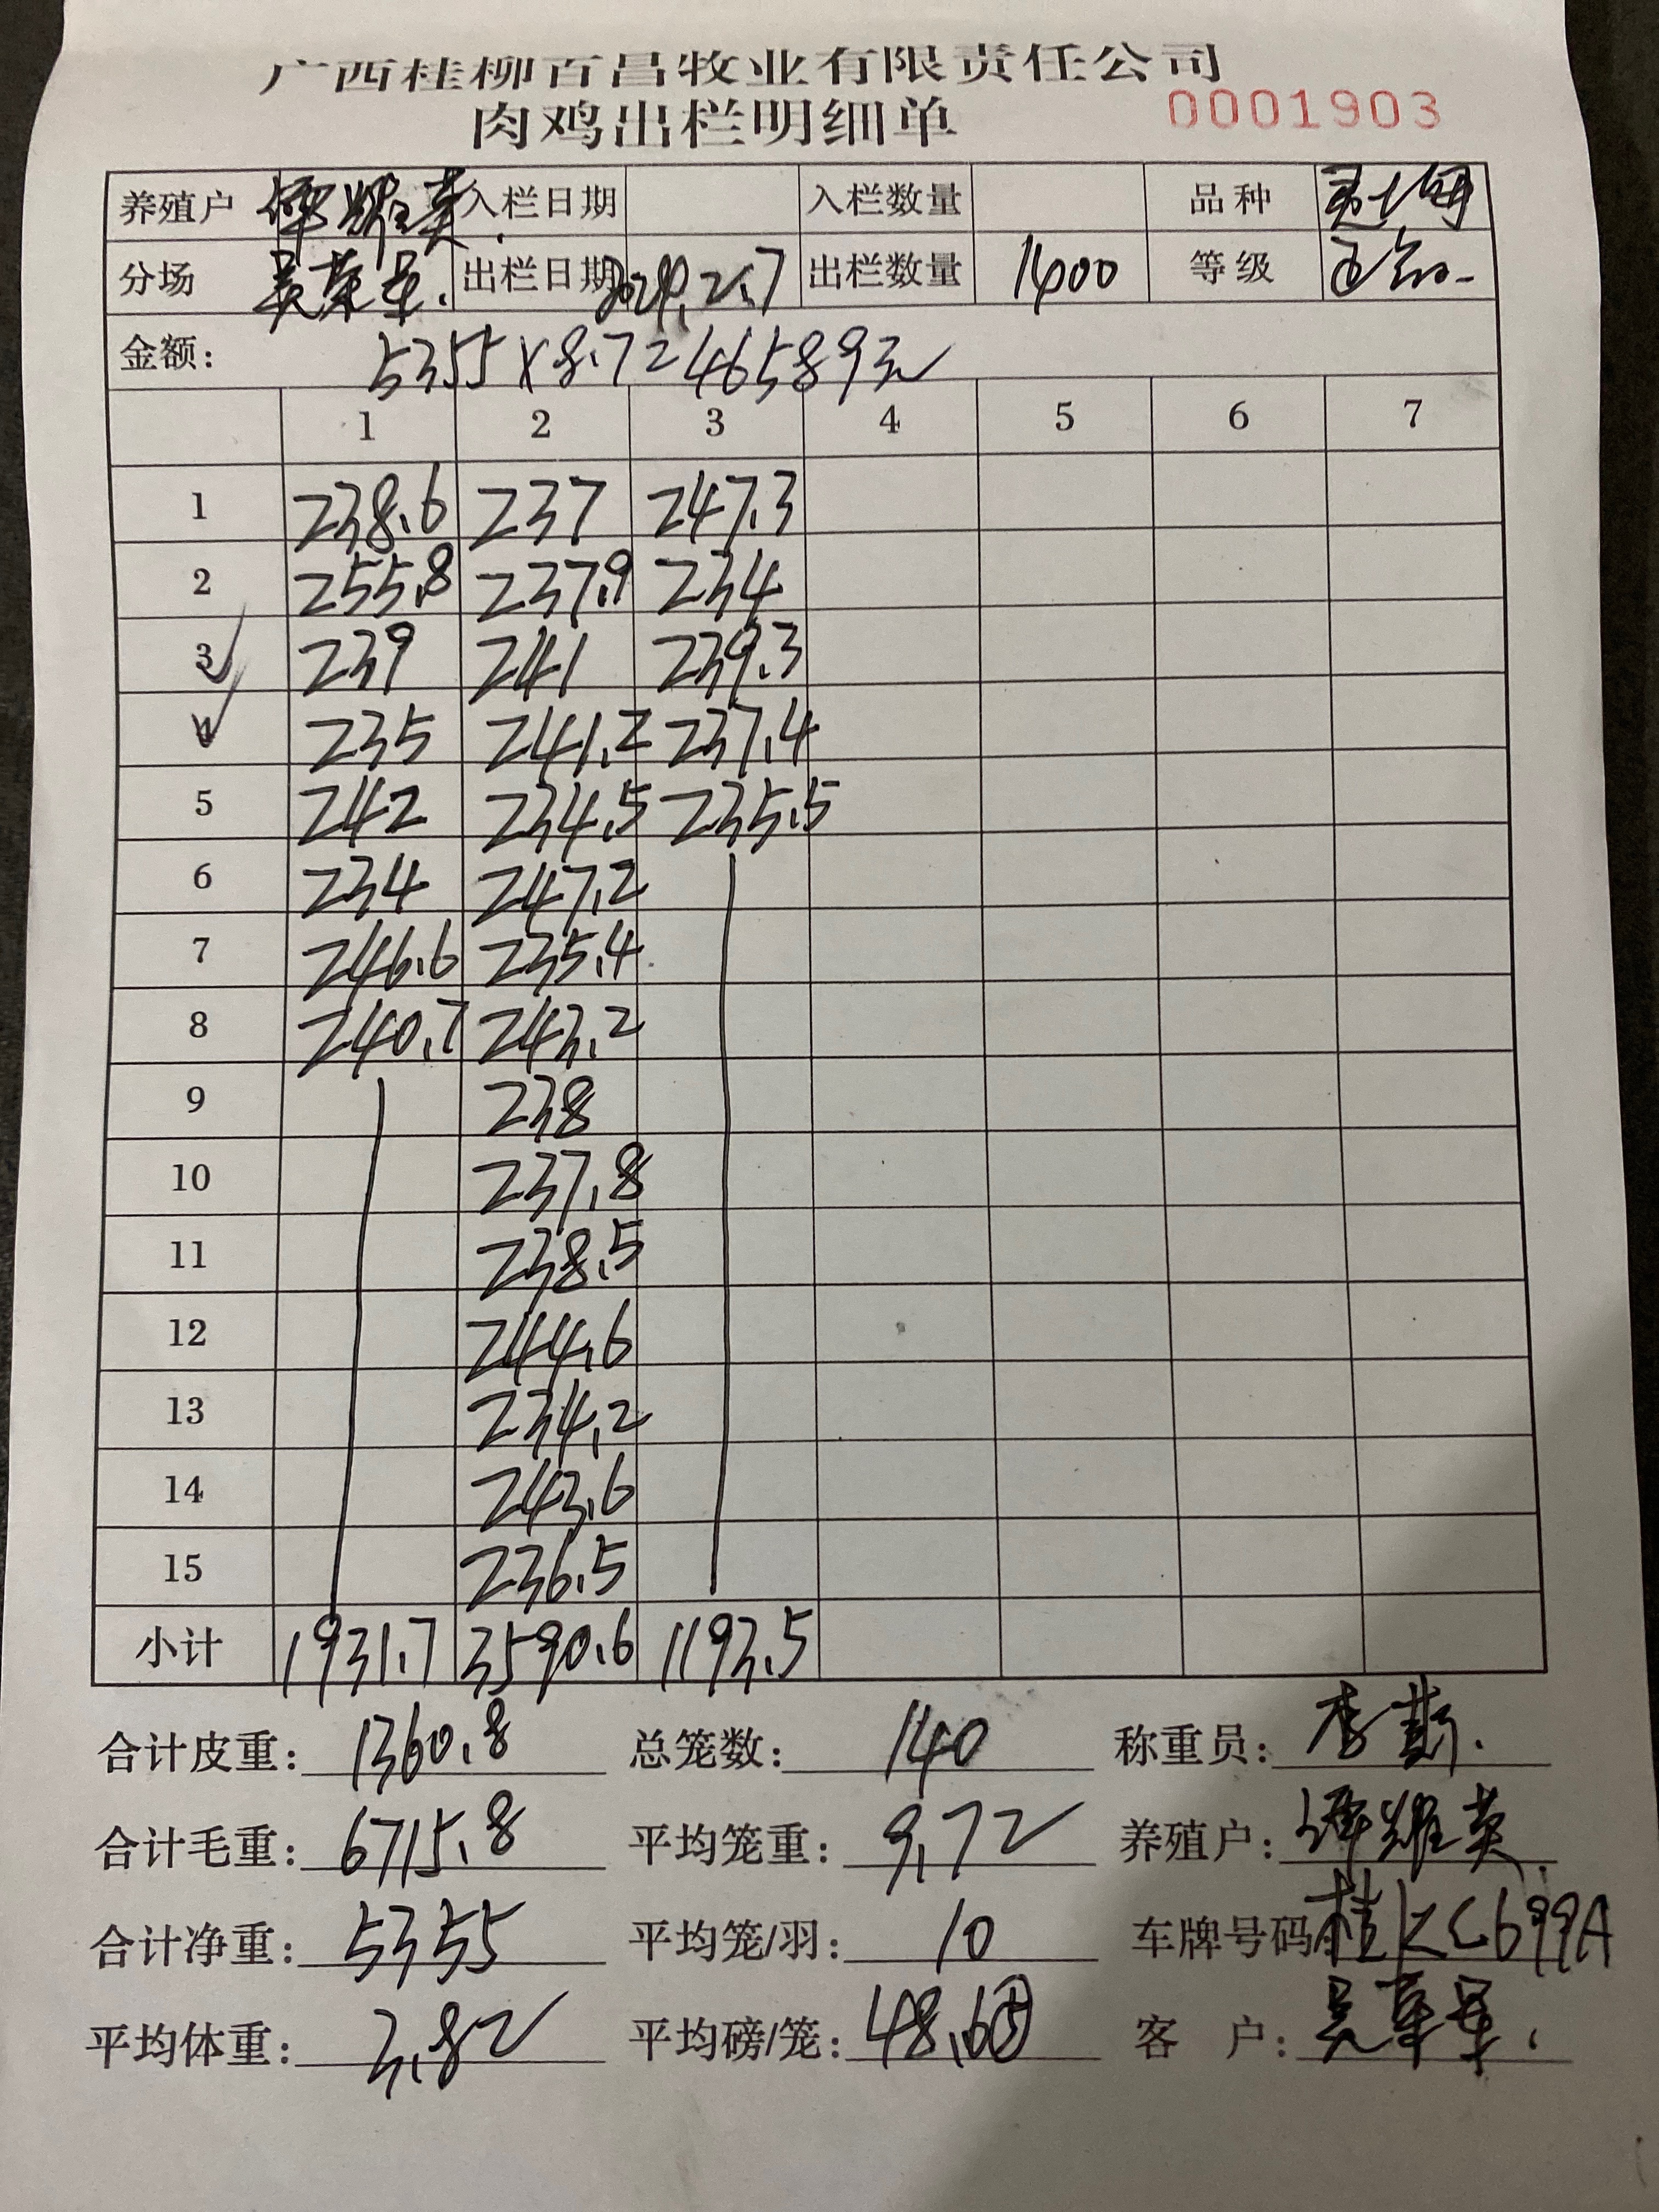 广西桂柳百昌牧业有限责任公司
肉鸡出栏明细单 0001903
养殖户 谭耀英 入栏日期 入栏数量 品种
分场 出栏日期 出栏数量 1400 等级
金额: 5355×8.7=46589元
1 2 3 4 5 6 7
1 238.6 237 247.3
2 255.8 237.9 234
3 239 241 239.3
4 235 241.2 237.4
5 242 234.5 235.5
6 234 247.2
7 246.6 235.4
8 240.7 243.2
9 238
10 237.8
11 238.5
12 244.6
13 234.2
14 243.6
15 236.5
小计 1931.7 3590.6 1193.5
合计皮重: 1360.8 总笼数: 140 称重员: 李
合计毛重: 6715.8 平均笼重: 9.72 养殖户: 谭耀英
合计净重: 5355 平均笼/羽: 10 车牌号码 桂KC699A
平均体重: 3.82 平均磅/笼: 48.6 客 户: